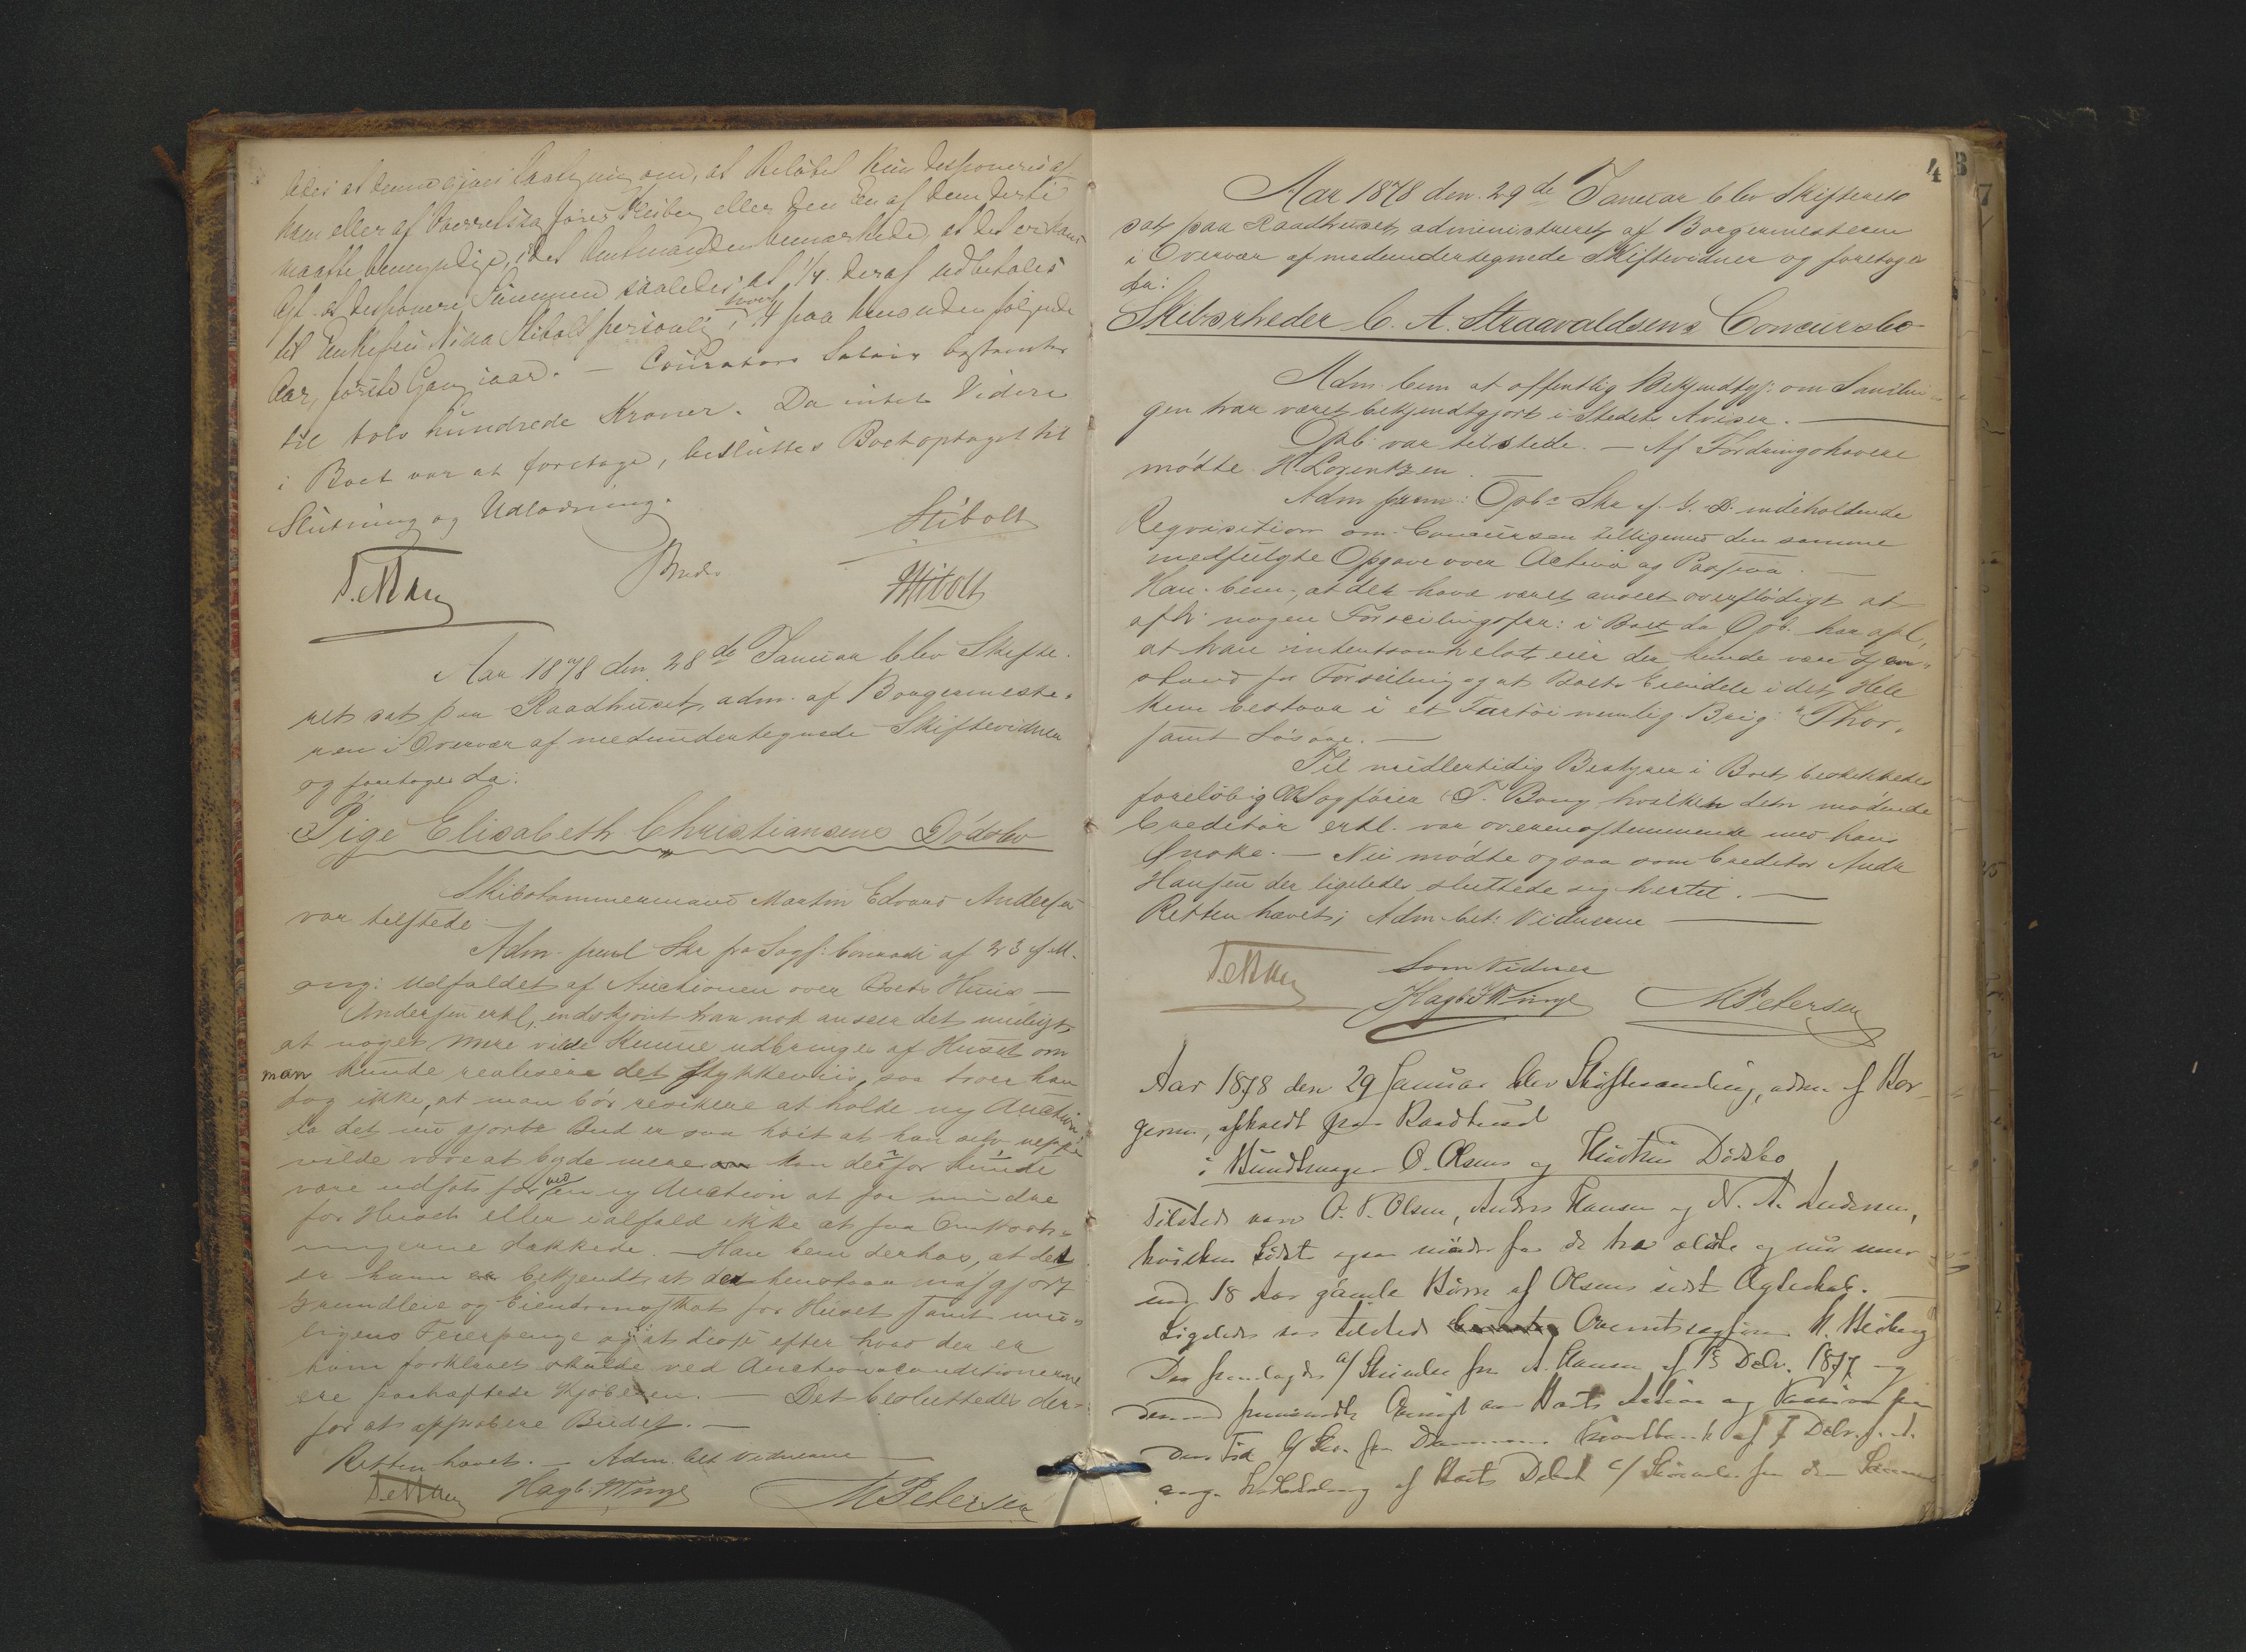 ledes at denne gjøres Paategning om, at Beløbet kun disponeres af
ham eller af Overretssagfører Heiberg eller den En af dem dertil
maatte bemyndige, idet Amtmanden bemærkede, at det er hans
Agt at disponere Summen saaledes at 1/4 deraf udbetales
til Enkefru Nina Stibolt personlig, 1/4 hver paa hinanden følgende
Aar, første Gang iaar. — Curators Salair bestemtes
til tolv hundrede Kroner. Da intet Videre
i Boet var at foretage, besluttes Boet optaget til
Slutning og Udlodning.
Stibolt
Stibolt
Aar 1878 den 28de Januar blev Skifte-
ret sat paa Raadhuset, adm. af Borgermeste-
ren i Overvær af medundertegnede Skiftevidner
og foretoges da:
Pige Elisabeth Christiansens Dødsbo
Skibstømmermand Martin Edvard Andersen
var tilstede
Adm. freml Skr fra Sagf: Conradi af 23 f. M.
ang: Udfaldet af Auctionen over Boets Huus —
Andersen erkl, endskjønt han nok anseer det muligt,
at noget mere vilde kunne udbringes af Huset om
man kunde realisere det stykkeviis, saa troer han
dog ikke, at man bør resikere at holde ny Auction
da det nu gjorte Bud er saa høit at han selv neppe
vilde være at byde mere. Man derfor kunde
være udsat for ved en ny Auction at faa mindre
for Huset eller ialfald ikke at faa Omkost-
ningerne dækkede. — Han bem derhos, at det
er ham bekjendt at der henstaar uafgjort
Grundleie og Eiendomsskat for Huset samt mu-
ligens Feierpenge og at disse efter hvad der er
ham forklaret skulde ved Auctionsconditionerne
ere paahæftede Kjøberen. — Det besluttedes der-
for at approbere Budet. —
Retten hævet. — Adm. bet Vidnerne —
Hagb. Winge M Petersen
4
Aar 1878 den 29de Januar blev Skifteret
sat paa Raadhuset, administreret af Borgermesteren
i Overvær af medundertegnede Skiftevidner og foretoges
da:
Skibsrheder C. A. Straavaldsens Concursbo
Adm. bem at offentlig Bekjendtgj: om Samlin-
gen har været bekjendtgjort i Stedets Aviser. —
Opb. var tilstede. — Af Fordringshavere
mødte H. Lorentzen.
Adm frem: Opbs Skr af G. D. indeholdende
Reqvisition om Concursen tilligemed den samme
medfulgte Opgave over Activa og Passiva. —
Han bem, at det havde været anseet overflødigt at
afh nogen Forseilingsforr: i Boet da Opb. har opl,
at han intetsomhelst eier der kunde være Gjen-
stand for Forseiling og at Boets Eiendele i det Hele
kun bestaar i et Fartøi nemlig Brig "Thor"
samt Løsøre. —
Til midlertidig Bestyrer i Boet beskikkedes
foreløbig ORSagfører T. Bang hvilken den mødende
Creditor erkl. var overensstemmende med hans
Ønske. — Nu mødte ogsaa som Creditor Andr
Hansen der ligeledes sluttede sig hertil. —
Retten hævet; Adm. bet: Vidnerne —
Som Vidner
Hagb. Winge M Petersen
Aar 1878 den 29 Januar blev Skiftesamling, adm af Bor-
germ, afholdt paa Raadhuset
i Bundtmager O. Olsens og Hustrus Dødsbo
Tilstede vare O. P. Olsen, Anders Hansen og N. A. Andersen,
hvilken Sidste ogsaa møder for de tre ældste og nu mere
end 18 Aar gamle Børn af Olsens sidst Ægteskab. —
Ligeledes var tilstede Overretssagfører H. Heiberg
Der fremlagdes a/ Skrivelse fra A. Hansen af 13 Decbr. 1877 og
dermed fremsendte Oversigt over Boets Activa og Passiva paa
den Tid b/ Skr. fra af 7 Decbr. f. A.
ang. af Boets Debet c/ Skrivelse fra den Samme